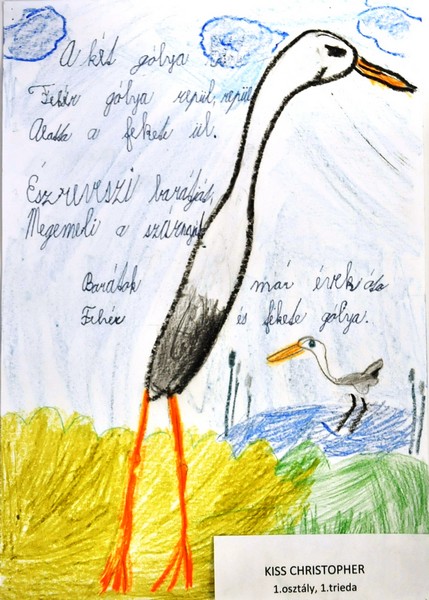 A két gólya
Fehér gólya repül, repül,
Alatta a fekete ül.
Észreveszi barátját,
Megemeli a szárnyát
Barátok már évek óta
Fehér és fekete gólya.
KISS CHRISTOPHER
1.osztály, 1.trieda